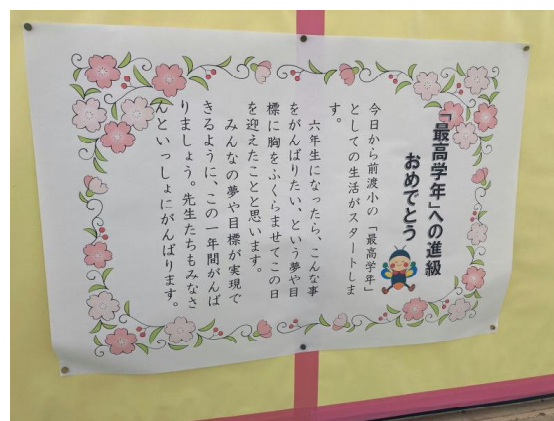 「最高学年」への進級
おめでとう
今日から前渡小の「最高学年」
としての生活がスタートしま
す。
六年生になったら、こんな事
をがんばりたい、という夢や目
標に胸をふくらませてこの日
を迎えたことと思います。
みんなの夢や目標が実現で
きるように、この一年間がんば
りましょう。先生たちもみなさ
んといっしょにがんばります。